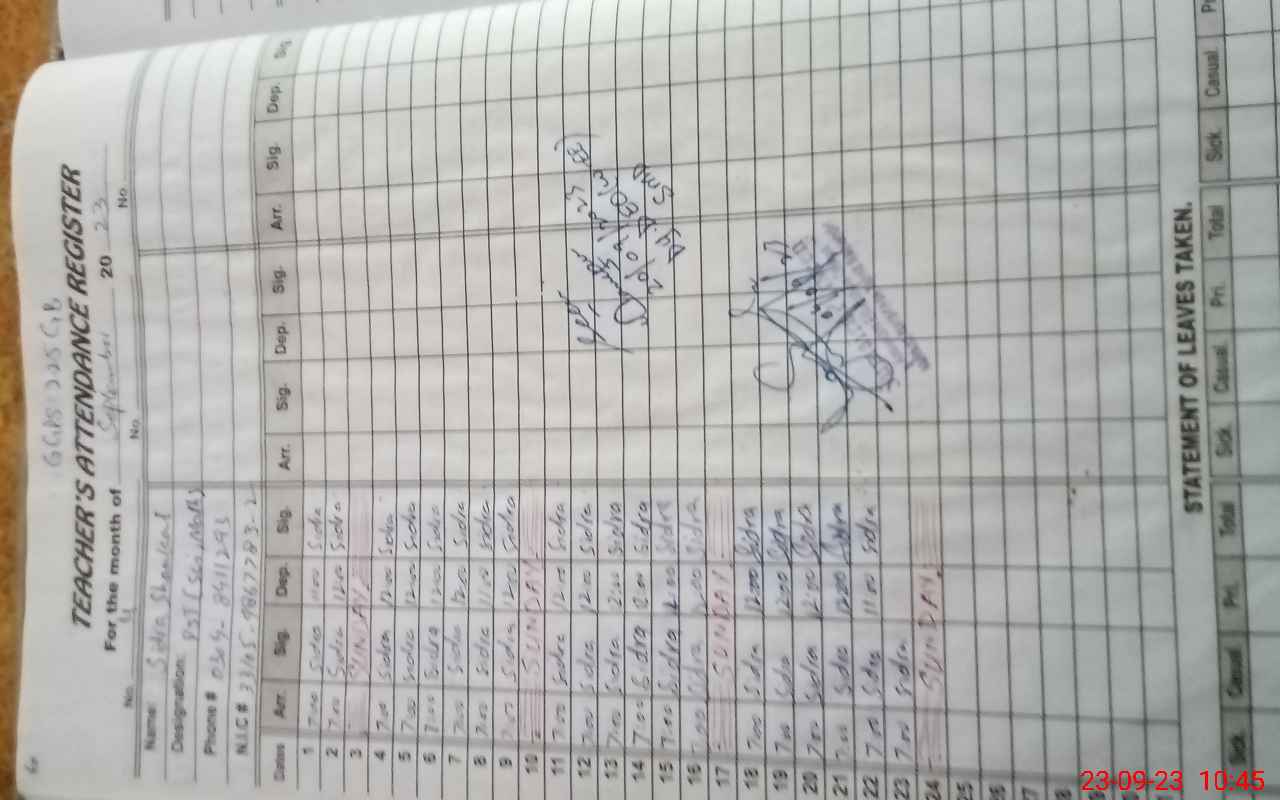 TEACHER'S ATTENDANCE REGISTER
For the month of September 20 23
No. No. No.
Name: Sidra
Designation: PST
Phone #
N.I.C #
Dates Arr. Sig. Dep. Sig. Arr. Sig. Dep. Sig. Arr. Sig. Dep. Sig.
1 7:00 Sidra 11:00 Sidra
2 7:00 Sidra 12:00 Sidra
3 SUNDAY
4 7:00 Sidra 12:00 Sidra
5 7:00 Sidra 12:00 Sidra
6 7:00 Sidra 12:00 Sidra
7 7:00 Sidra 12:00 Sidra
8 7:00 Sidra 11:00 Sidra
9 7:00 Sidra 12:00 Sidra
10 SUNDAY
11 7:00 Sidra 12:00 Sidra
12 7:00 Sidra 12:00 Sidra
13 7:00 Sidra 12:00 Sidra
14 7:00 Sidra 12:00 Sidra
15 7:00 Sidra 12:00 Sidra
16 7:00 Sidra 12:00 Sidra
17 SUNDAY
18 7:00 Sidra 12:00 Sidra
19 7:00 Sidra 12:00 Sidra
20 7:00 Sidra 12:00 Sidra
21 7:00 Sidra 12:00 Sidra
22 7:00 Sidra 11:00 Sidra
23 7:00 Sidra
24 SUNDAY
25
26
27
STATEMENT OF LEAVES TAKEN.
Sick. Casual Pri. Total Sick. Casual Pri. Total Sick. Casual
23-09-23 10:45